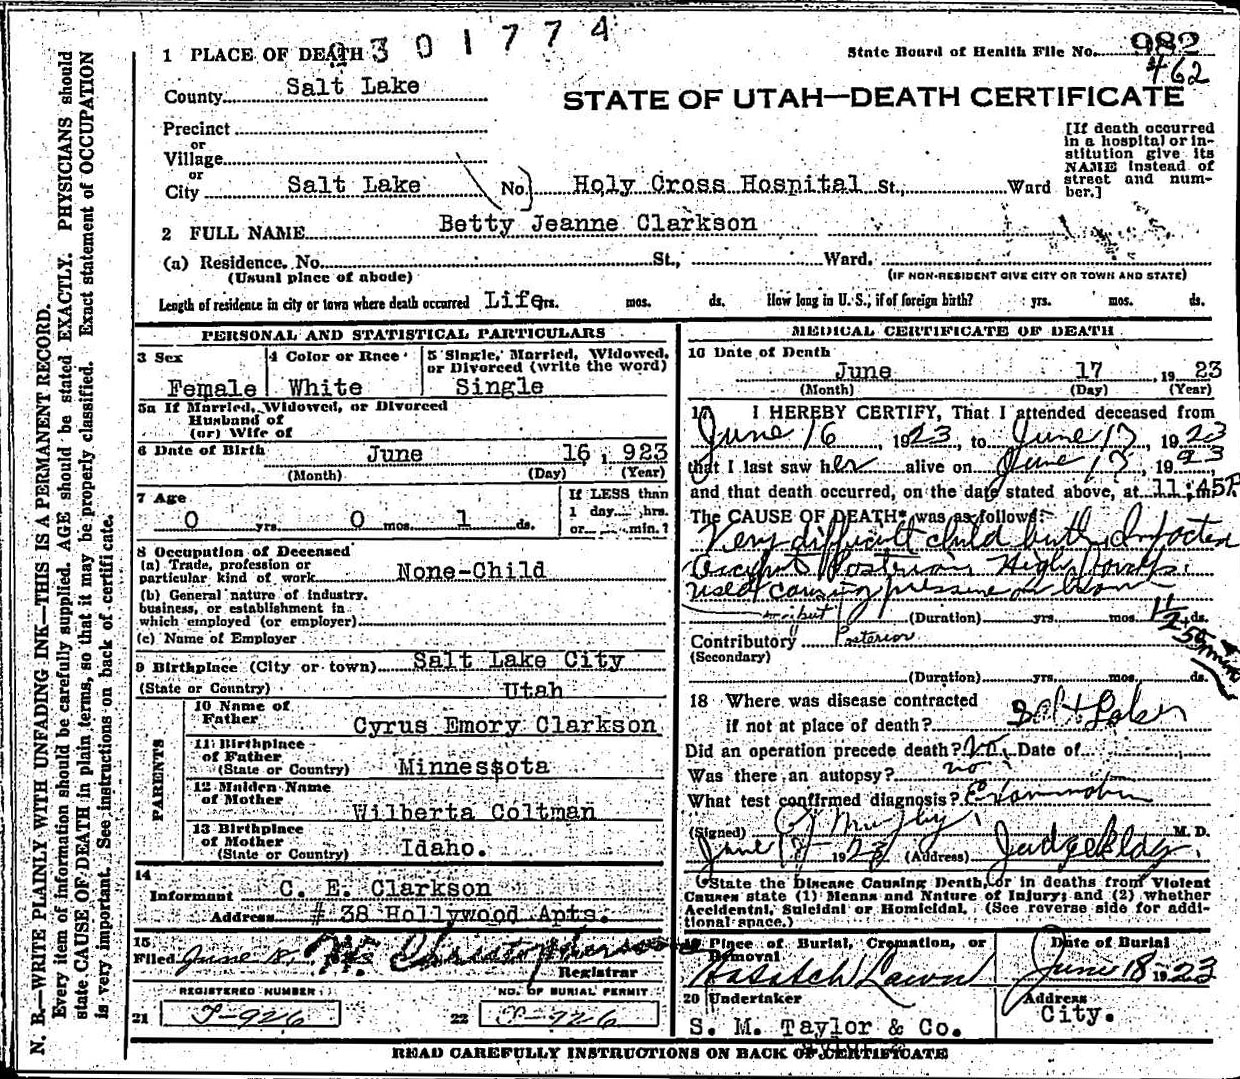 2301774
1 PLACE OF DEATH
State Board of Health File No. 982
462
County Salt Lake
STATE OF UTAH—DEATH CERTIFICATE
Precinct
or
Village
or
City Salt Lake No. Holy Cross Hospital St., Ward
[If death occurred in a hospital or institution give its NAME instead of street and number.]
2 FULL NAME Betty Jeanne Clarkson
(a) Residence. No. St., Ward.
(Usual place of abode) (IF NON-RESIDENT GIVE CITY OR TOWN AND STATE)
Length of residence in city or town where death occurred Life yrs. mos. ds. How long in U. S., if of foreign birth? yrs. mos. ds.
PERSONAL AND STATISTICAL PARTICULARS
3 Sex
Female
4 Color or Race
White
5 Single, Married, Widowed,
or Divorced (write the word)
Single
5a If Married, Widowed, or Divorced
Husband of
(or) Wife of
6 Date of Birth June 16, 923
(Month) (Day) (Year)
7 Age
0 yrs. 0 mos. 1 ds.
If LESS than
1 day hrs.
or min.?
8 Occupation of Deceased
(a) Trade, profession or
particular kind of work None-Child
(b) General nature of industry.
business, or establishment in
which employed (or employer)
(c) Name of Employer
9 Birthplace (City or town) Salt Lake City
(State or Country) Utah
PARENTS
10 Name of
Father Cyrus Emory Clarkson
11 Birthplace
of Father
(State or Country) Minnesota
12 Maiden Name
of Mother
Wilberta Coltman
13 Birthplace
of Mother
(State or Country) Idaho.
14
Informant C. E. Clarkson
Address # 38 Hollywood Apts.
15
Filed June
Registrar
REGISTERED NUMBER
NO. OF BURIAL PERMIT
21 P-926
22 P-926
MEDICAL CERTIFICATE OF DEATH
16 Date of Death
June 17, 1923
(Month) (Day) (Year)
17 I HEREBY CERTIFY, That I attended deceased from
June 16, 1923, to June 17, 1923
that I last saw her alive on June 17, 1923,
and that death occurred, on the date stated above, at 11:45P m.
The CAUSE OF DEATH* was as follows:
Very difficult child birth
Occiput Posterior. High forceps
used causing pressure on brain
(Duration) yrs. mos. 1 ds.
Contributory Posterior
(Secondary)
(Duration) yrs. mos. ds.
18 Where was disease contracted
if not at place of death? Salt Lake
Did an operation precede death? No. Date of
Was there an autopsy? no
What test confirmed diagnosis? Examination
(Signed) Murphy M. D.
June 18 1923 (Address) Judge Bldg.
*State the Disease Causing Death, or in deaths from Violent
Causes state (1) Means and Nature of Injury; and (2) whether
Accidental, Suicidal or Homicidal. (See reverse side for additional space.)
19 Place of Burial, Cremation, or
Removal
Wasatch Lawn
Date of Burial
June 18 1923
20 Undertaker
S. M. Taylor & Co.
Address
City.
READ CAREFULLY INSTRUCTIONS ON BACK OF CERTIFICATE
N. B.—WRITE PLAINLY WITH UNFADING INK—THIS IS A PERMANENT RECORD.
Every item of information should be carefully supplied. AGE should be stated EXACTLY. PHYSICIANS should
state CAUSE OF DEATH in plain terms, so that it may be properly classified. Exact statement of OCCUPATION
is very important. See instructions on back of certificate.